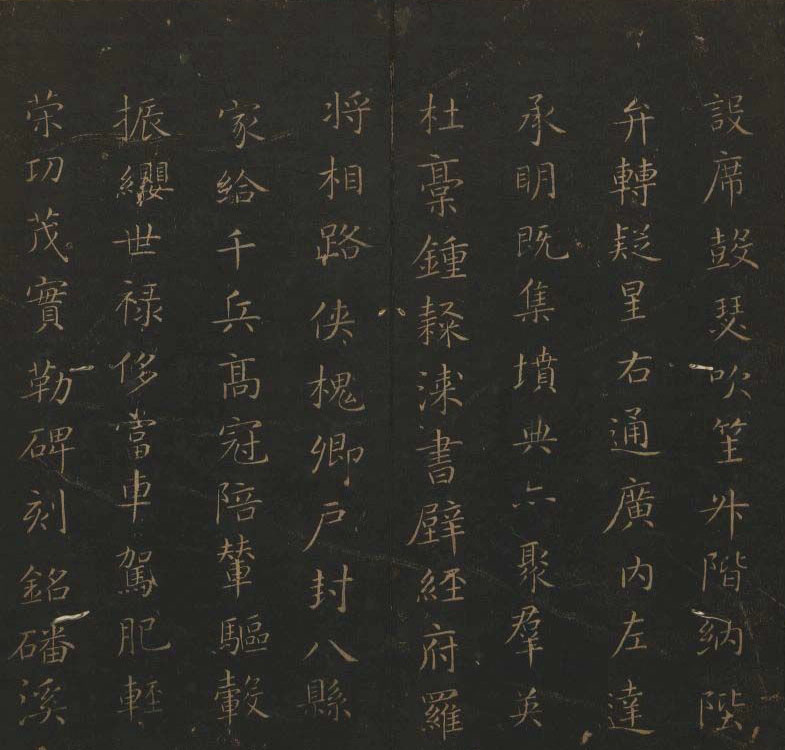 設席鼓瑟吹笙升階納陛
弁轉疑星右通廣内左達
承明既集墳典亦聚羣英
杜稾鍾隸漆書壁經府羅
将相路俠槐卿戶封八縣
家給千兵高冠陪輦驅轂
振纓世禄侈富車駕肥輕
策功茂實勒碑刻銘磻溪